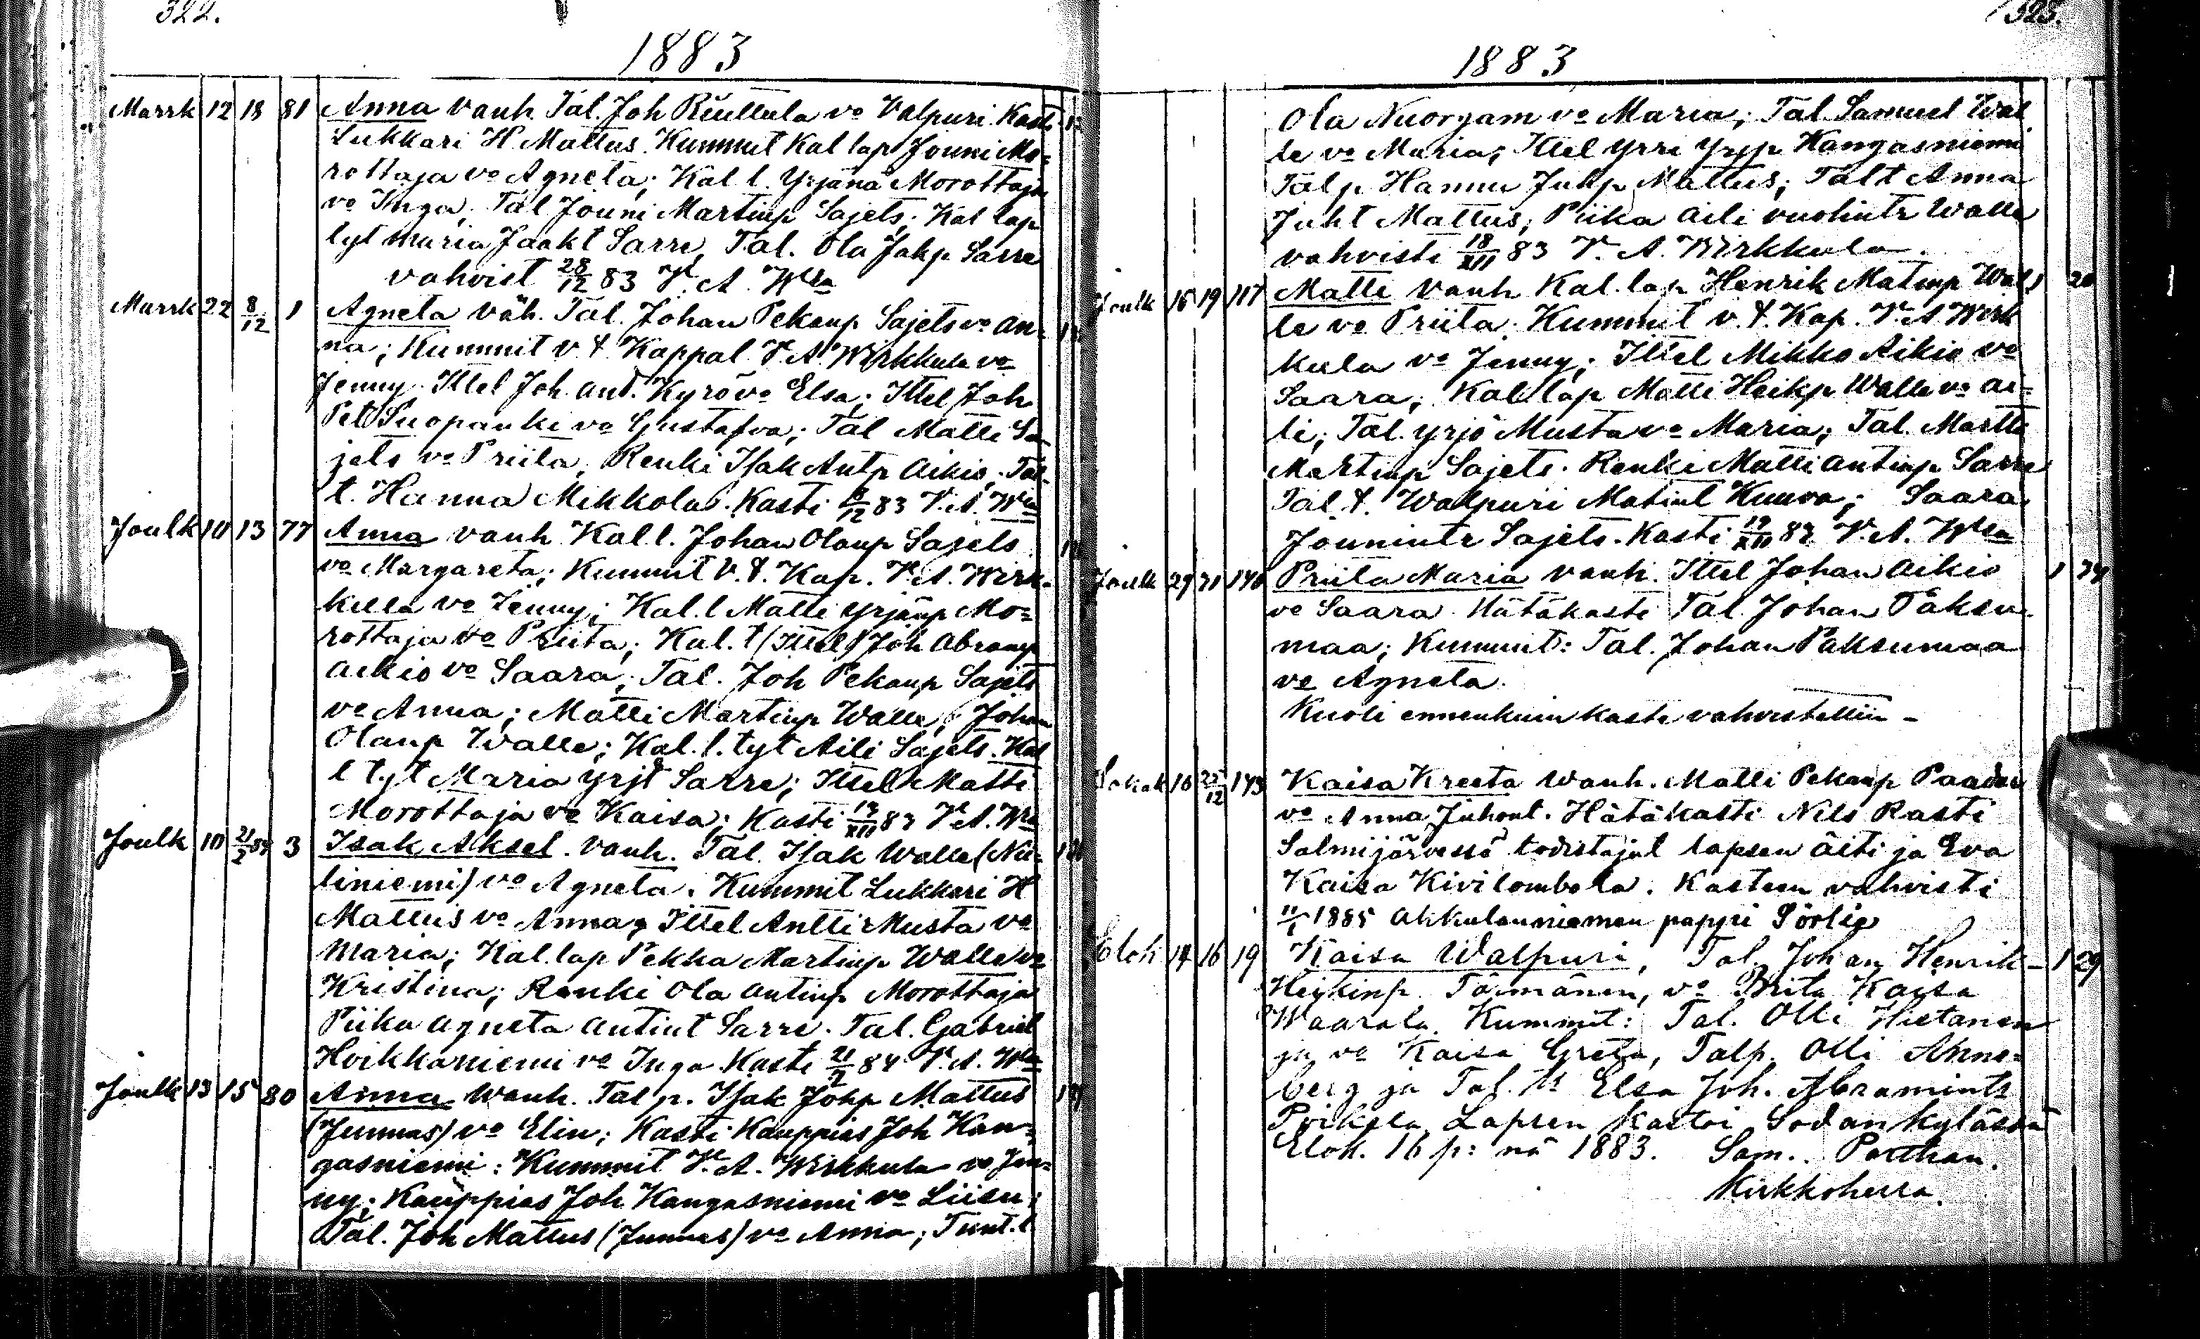 322.
1883
Marrk 12 18 81 Anna vanh. Tal. Joh Riuttula vo Valpuri. Kasti
Lukkari H. Mattus. Kummit Kal lap Jouni Mo=
rottaja vo Agneta; Kal l. Yrjänä Morottaja
vo Inga; Tal Jouni Martinp Sajets; Kal lap
tyt Maria Jaakt Sarre, Tal. Ola Jakp Sarre
vahvist 28/12 83 V. A. Wla
Marrk 22 8/12 1 Agneta väh. Tal. Johan Pekanp Sajets vo An=
na; Kummit v. t. Kappal. V. A. Wirkkula vo
Jenny. Ittel Joh. And. Kyrö vo Elsa; Ittel Joh
Pet Suopanki vo Gustafva; Tal Matti Sa
jets vo Priita, Renki Isak Antp Aikio, Tal
t. Hanna Mikkola. Kasti 8/12 83 V. A. Wla
Joulk 10 13 77 Anna vanh. Kal l. Johan Olanp Sajets
vo Margareta; Kummit v. t. Kap. V. A. Wirk=
kula vo Jenny; Kal. l Matti Yrjänp Mo=
rottaja vo Priita; Kal. l (Ittel) Joh Abramp
Aikio vo Saara; Tal. Joh Pekanp Sajets
vo Anna; Matti Martinp Walle; Johan
Olanp Walle; Kal. l. tyt Aili Sajets. Kal
l tyt Maria Yrjt Sarre; Ittel Matti
Morottaja vo Kaisa; Kasti 13/XII 83 V. A. Wla
Joulk 10 21/2 84 3 Isak Aksel. vanh. Tal. Isak Walle (Nu=
liniemi) vo Agneta. Kummit Lukkari H
Mattus vo Anna; Ittel Antti Musta vo
Maria; Kal. lap Pekka Martinp Walle vo
Kristina; Renki Ola Antinp Morottaja
Piika Agneta Antint Sarre. Tal. Gabriel
Hoikkaniemi vo Inga. Kasti 21/2 84 V. A. Wla
Joulk 13 15 80 Anna Wanh. Tal p. Isak Johp Mattus
(Junnas) vo Elin; Kasti Kauppias Joh Kan=
gasniemi: Kummit V. A. Wirkkula vo Jen=
ny; Kauppias Joh Kangasniemi vo Liisu;
Tal. Joh Mattus (Junnas) vo Anna; Tunt. l
1883
Ola Nuorgam vo Maria; Tal. Samuel Wal
le vo Maria; Ittel Yrri Yrjp Kangasniemi
Talp Hannu Juhp Mattus; Talt Anna
Juht Mattus; Piika Aili vuolintr Walle
vahvisti 18/XII 83 V. A. Wirkkula.
Joulk 16 19 117 Matti Vanh Kal. lap Henrik Matinp Wal 1 20
le vo Priita. Kummit v. t. Kap. V. A Wirk
kula vo Jenny; Ittel Mikko Aikio vo
Saara; Kal lap Matti Heikp Walle vo Ai=
li; Tal. Yrjö Musta vo Maria; Tal. Martti
Martinp Sajets. Renki Matti Antinp Sarre
Tal. t. Walpuri Matint Kuuva; Saara
Jounintr Sajets. Kasti 19/XII 83 V. A. Wla
Joulk 29 31 146 Priita Maria vanh. Ittel Johan Aikio 1 34
vo Saara. Hätäkasti Tal. Johan Paksu
maa; Kummit: Tal. Johan Paksumaa
vo Agneta.
Kuoli ennenkuin kaste vahvistettiin -
Lokak 16 25/12 173 Kaisa Kreeta wanh. Matti Pekanp Paadar
vo Anna Juhont. Hätäkasti Nils Rasti
Salmijärvessä todistajat lapsen äiti ja Eva
Kaisa Kivilombola. Kasteen vahvisti
11/1 1885 Akkulanniemen pappi Sörlie
Elok 14 16 19 Kaisa Walpuri, Tal. Johan Henrik 1 29
Heikinp. Törmänen, vo Brita Kaisa
Waarala. Kummit: Tal. Olli Hietanen
ja vo Kaisa Greta, Talp. Olli Anne=
berg ja Tal. tr Elsa Joh. Abramintr
Poikela. Lapsen kastoi Sodankylässä
Elok. 16 p: nä 1883. Sam. Porthan.
Kirkkoherra.